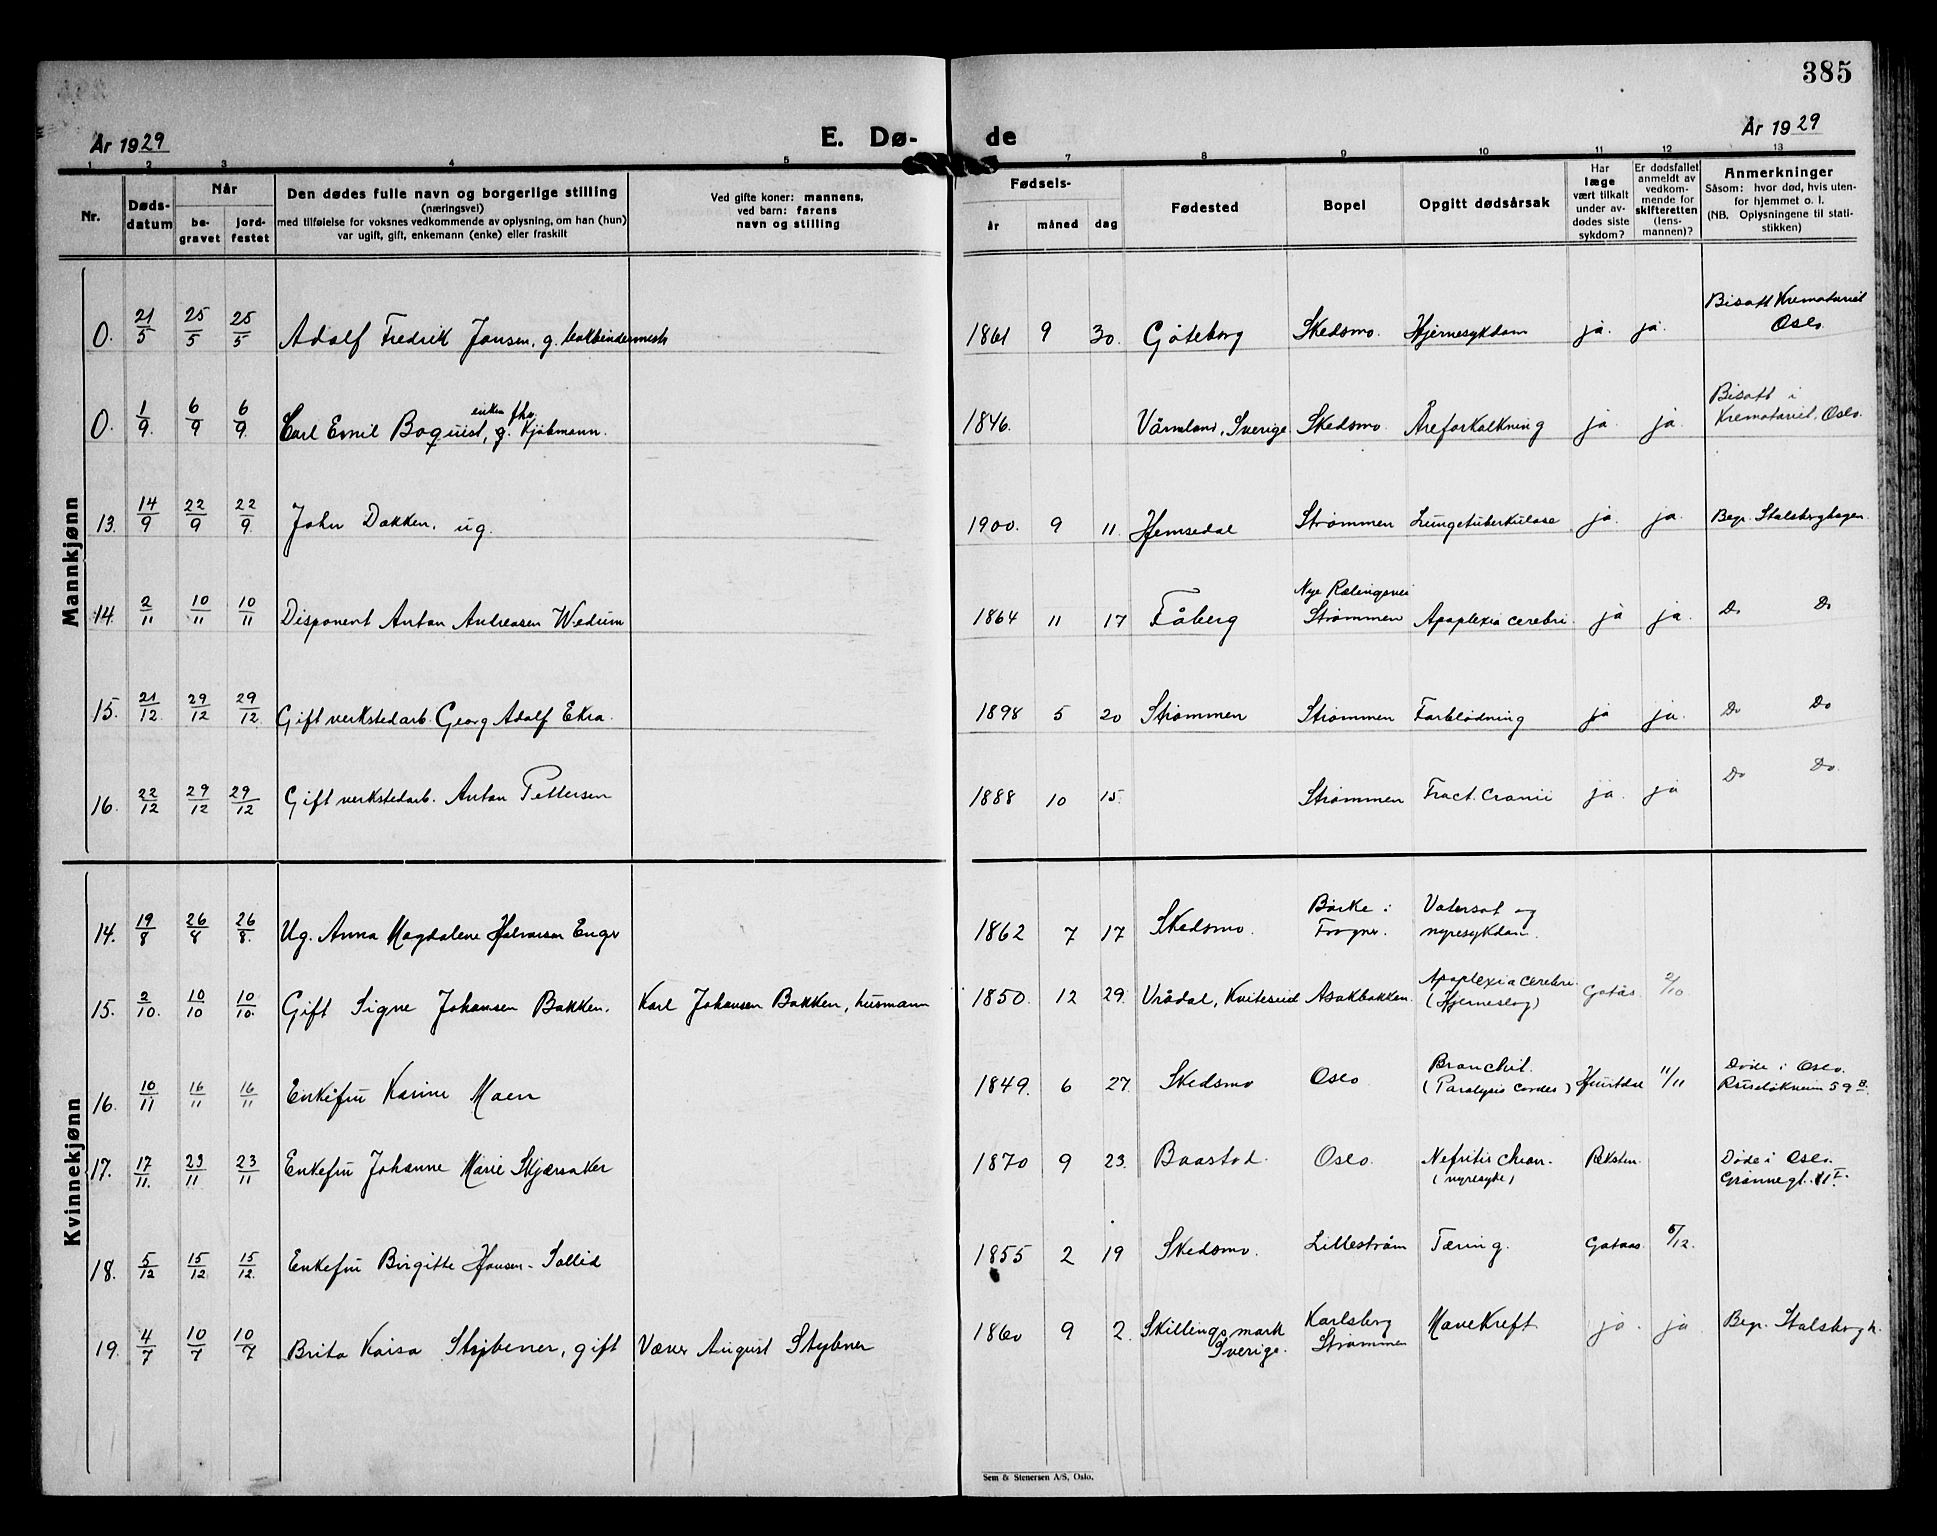 385
År 1929
E. Dø-
de
År 1929
1 2 3 4 5 7 8 9 10 11 12 13
Nr.
Døds-
datum
Når
be-
gravet
jord-
festet
Den dødes fulle navn og borgerlige stilling
(næringsvei)
med tilføielse for voksnes vedkommende av oplysning, om han (hun)
var ugift, gift, enkemann (enke) eller fraskilt
Ved gifte koner: mannens,
ved barn: farens
navn og stilling
Fødsels-
år måned dag
Fødested
Bopel
Opgitt dødsårsak
Har
læge
vært tilkalt
under av-
dødes siste
sykdom?
Er dødsfallet
anmeldt av
vedkom-
mende for
skifteretten
(lens-
mannen)?
Anmerkninger
Såsom: hvor død, hvis uten-
for hjemmet o. l.
(NB. Oplysningene til stati-
stikken)
Mannkjønn
0. 21/5 25/5 25/5 Adolf Fredrik Jansen, g. bokbindermestr 1861 9 30. Göteborg Skedsmo. Hjernesykdom ja. ja. Bisatt Krematoriet
Oslo
0. 1/9. 6/9 6/9. Carl Emil Boquist, g. enkem fhv. Kjøbmann. 1846. Värmland, Sverige. Skedsmo. Åreforkalkning ja ja. Bisatt i
Krematoriet, Oslo.
13. 14/9 22/9 22/9. John Dokken, ug. 1900. 9 11. Hemsedal Strømmen Lungetuberkulose ja. ja. Begr. Stalsberghagen
14. 2/11 10/11 10/11 Disponent Anton Andreasen Wedum 1864 11 17 Fåberg Nye Rælingsvei
Strømmen Apoplexia cerebri. ja ja. Do Do
15. 21/12. 29/12 29/12. Gift verkstedarb. Georg Adolf Ekra. 1898 5 20 Strømmen Strømmen Forblødning ja ja. Do Do
16. 22/12 29/12 29/12 Gift verkstedarb. Anton Pettersen 1888 10 15. Strømmen Fract. cranii ja. ja Do Do.
Kvinnekjønn
14. 19/8 26/8 26/8. Ug. Anna Magdalene Halvorsen Enger 1862 7 17 Skedsmo. Børke i
Frogner. Vatersot og
nyresykdom.
15. 2/10. 10/10 10/10. Gift Signe Johansen Bakken. Karl Johansen Bakken, husmann 1850. 12 29. Vrådal, Kviteseid Asakbakken. Apoplexia cerebri
(Hjerneslag) Gotås. 2/10
16. 10/11 16/11 16/11 Enkefru Karine Moen 1849. 6 27. Skedsmo Oslo Bronchit.
(Paralysis cordis) Hjortdal 11/11 Døde i Oslo.
17. 17/11. 23/11 23/11 Enkefru Johanne Marie Skjærsaker 1870 9 23. Baastad. Oslo. Nefritis chron.
(nyresyke) Døde i Oslo.
Grønnegt. 11 I.
18. 5/12 15/12 15/12. Enkefru Birgitte Hansen-Sollid 1855 2 19 Skedsmo. Lillestrøm Tæring. Gotaas. 6/12.
19. 4/7 10/7 10/7 Brita Kaisa Stybener, gift Væver August Stybner 1860 9 2. Skillingsmark
Sverige. Karlsberg
Strømmen Mavekreft ja. ja Begr. Stalsbergh.
Sem & Stenersen A/S, Oslo.